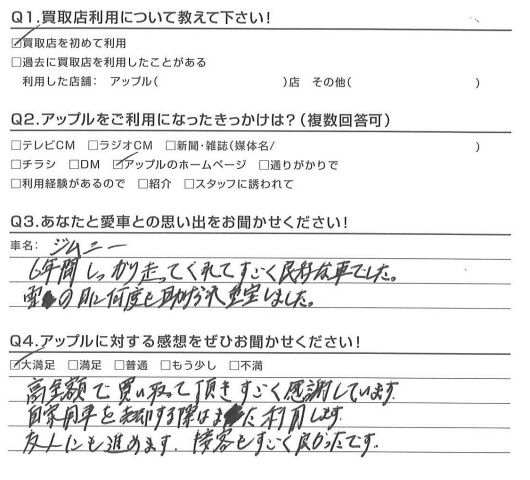 Q1.買取店利用について教えて下さい!
☑買取店を初めて利用
□過去に買取店を利用したことがある
利用した店舗: アップル( )店 その他( )
Q2.アップルをご利用になったきっかけは?(複数回答可)
□テレビCM □ラジオCM □新聞・雑誌(媒体名/ )
□チラシ □DM ☑アップルのホームページ □通りがかりで
□利用経験があるので □紹介 □スタッフに誘われて
Q3.あなたと愛車との思い出をお聞かせください!
車名: ジムニー
6年間しっかり走ってくれてすごく良好な車でした。
雪の日に何度も助けられ重宝しました。
Q4.アップルに対する感想をぜひお聞かせください!
☑大満足 □満足 □普通 □もう少し □不満
高金額で買い取って頂きすごく感謝しています。
自家用車を売却する際はまた利用します。
友人にも進めます。接客もすごく良かったです。